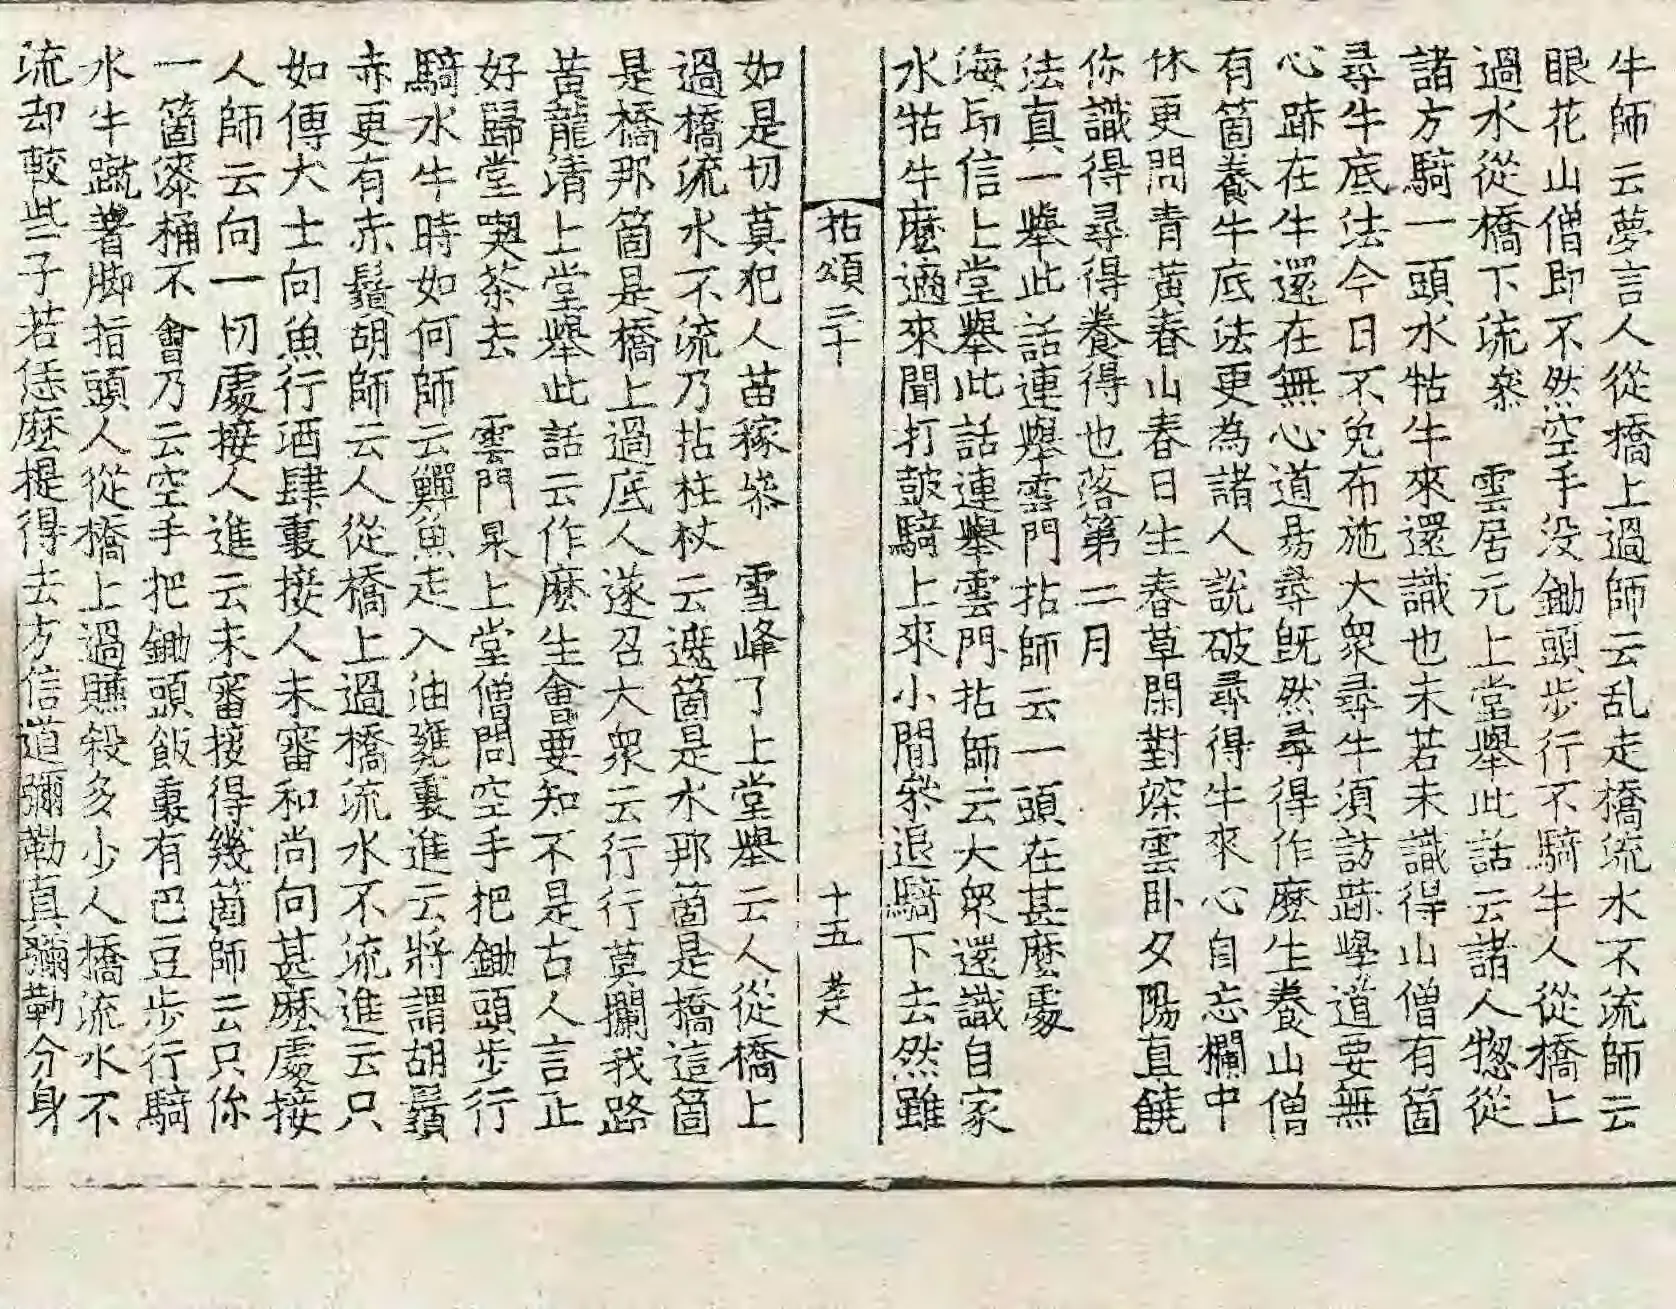 牛師云夢言人從橋上過師云乱走橋流水不流師云
眼花山僧即不然空手没鋤頭步行不騎牛人從橋上
過水從橋下流叅　雲居元上堂舉此話云諸人惣從
諸方騎一頭水牯牛來還識也未若未識得山僧有箇
尋牛底法今日不免布施大衆尋牛須訪跡學道要無
心跡在牛還在無心道易尋旣然尋得作麽生養山僧
有箇養牛底法更為諸人說破尋得牛來心自忘欄中
休更問青黃春山春日生春草閑對深雲卧夕陽直饒
你識得尋得養得也落第二月
法真一舉此話連舉雲門拈師云一頭在甚麽處
海印信上堂舉此話連舉雲門拈師云大衆還識自家
水牯牛麽適來聞打鼓騎上來小間叅退騎下去然雖
拈頌三十　十五
如是切莫犯人苗稼叅　雪峰了上堂舉云人從橋上
過橋流水不流乃拈柱杖云遮箇是水那箇是橋這箇
是橋那箇是橋上過底人遂召大衆云行行莫攔我路
黃龍清上堂舉此話云作麽生會要知不是古人言正
好歸堂喫茶去　雲門杲上堂僧問空手把鋤頭步行
騎水牛時如何師云鱓魚走入油甕裏進云將謂胡鬚
赤更有赤鬚胡師云人從橋上過橋流水不流進云只
如傅大士向魚行酒肆裏接人未審和尚向甚麽處接
人師云向一切處接人進云未審接得幾箇師云只你
一箇漆桶不會乃云空手把鋤頭飯裏有巴豆步行騎
水牛蹴著脚指頭人從橋上過賺殺多少人橋流水不
流却較些子若恁麽提得去方信道彌勒真彌勒分身